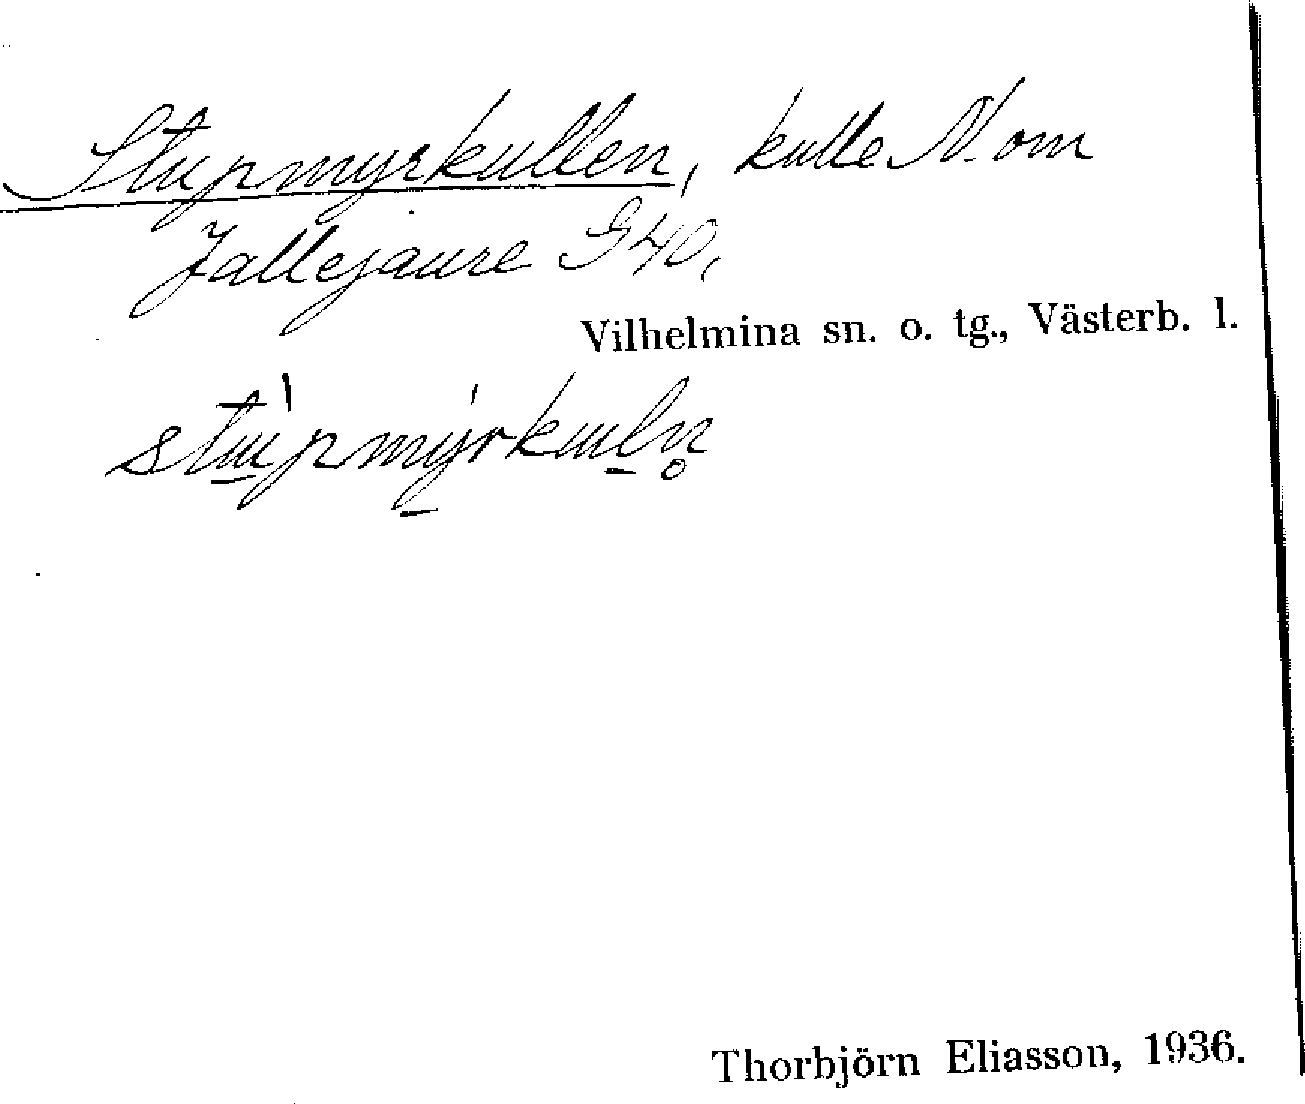 Stupmyrkullen, kulle N. om
Jallejaure G40,
Vilhelmina sn. o. tg., Västerb. l.
stu̲pmy̲rkul̲n̥
Thorbjörn Eliasson, 1936.